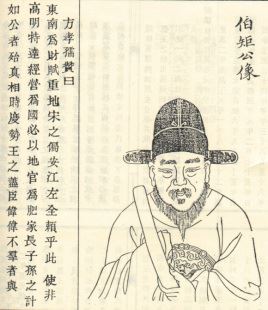 伯矩公像
方孝孺贊曰
東南爲財賦重地宋之偏安江左全頼乎此使非
高明特達經營爲國必以地官爲肥家長子孫之計
如公者殆真相時慶勢王之藎臣偉偉不羣者與